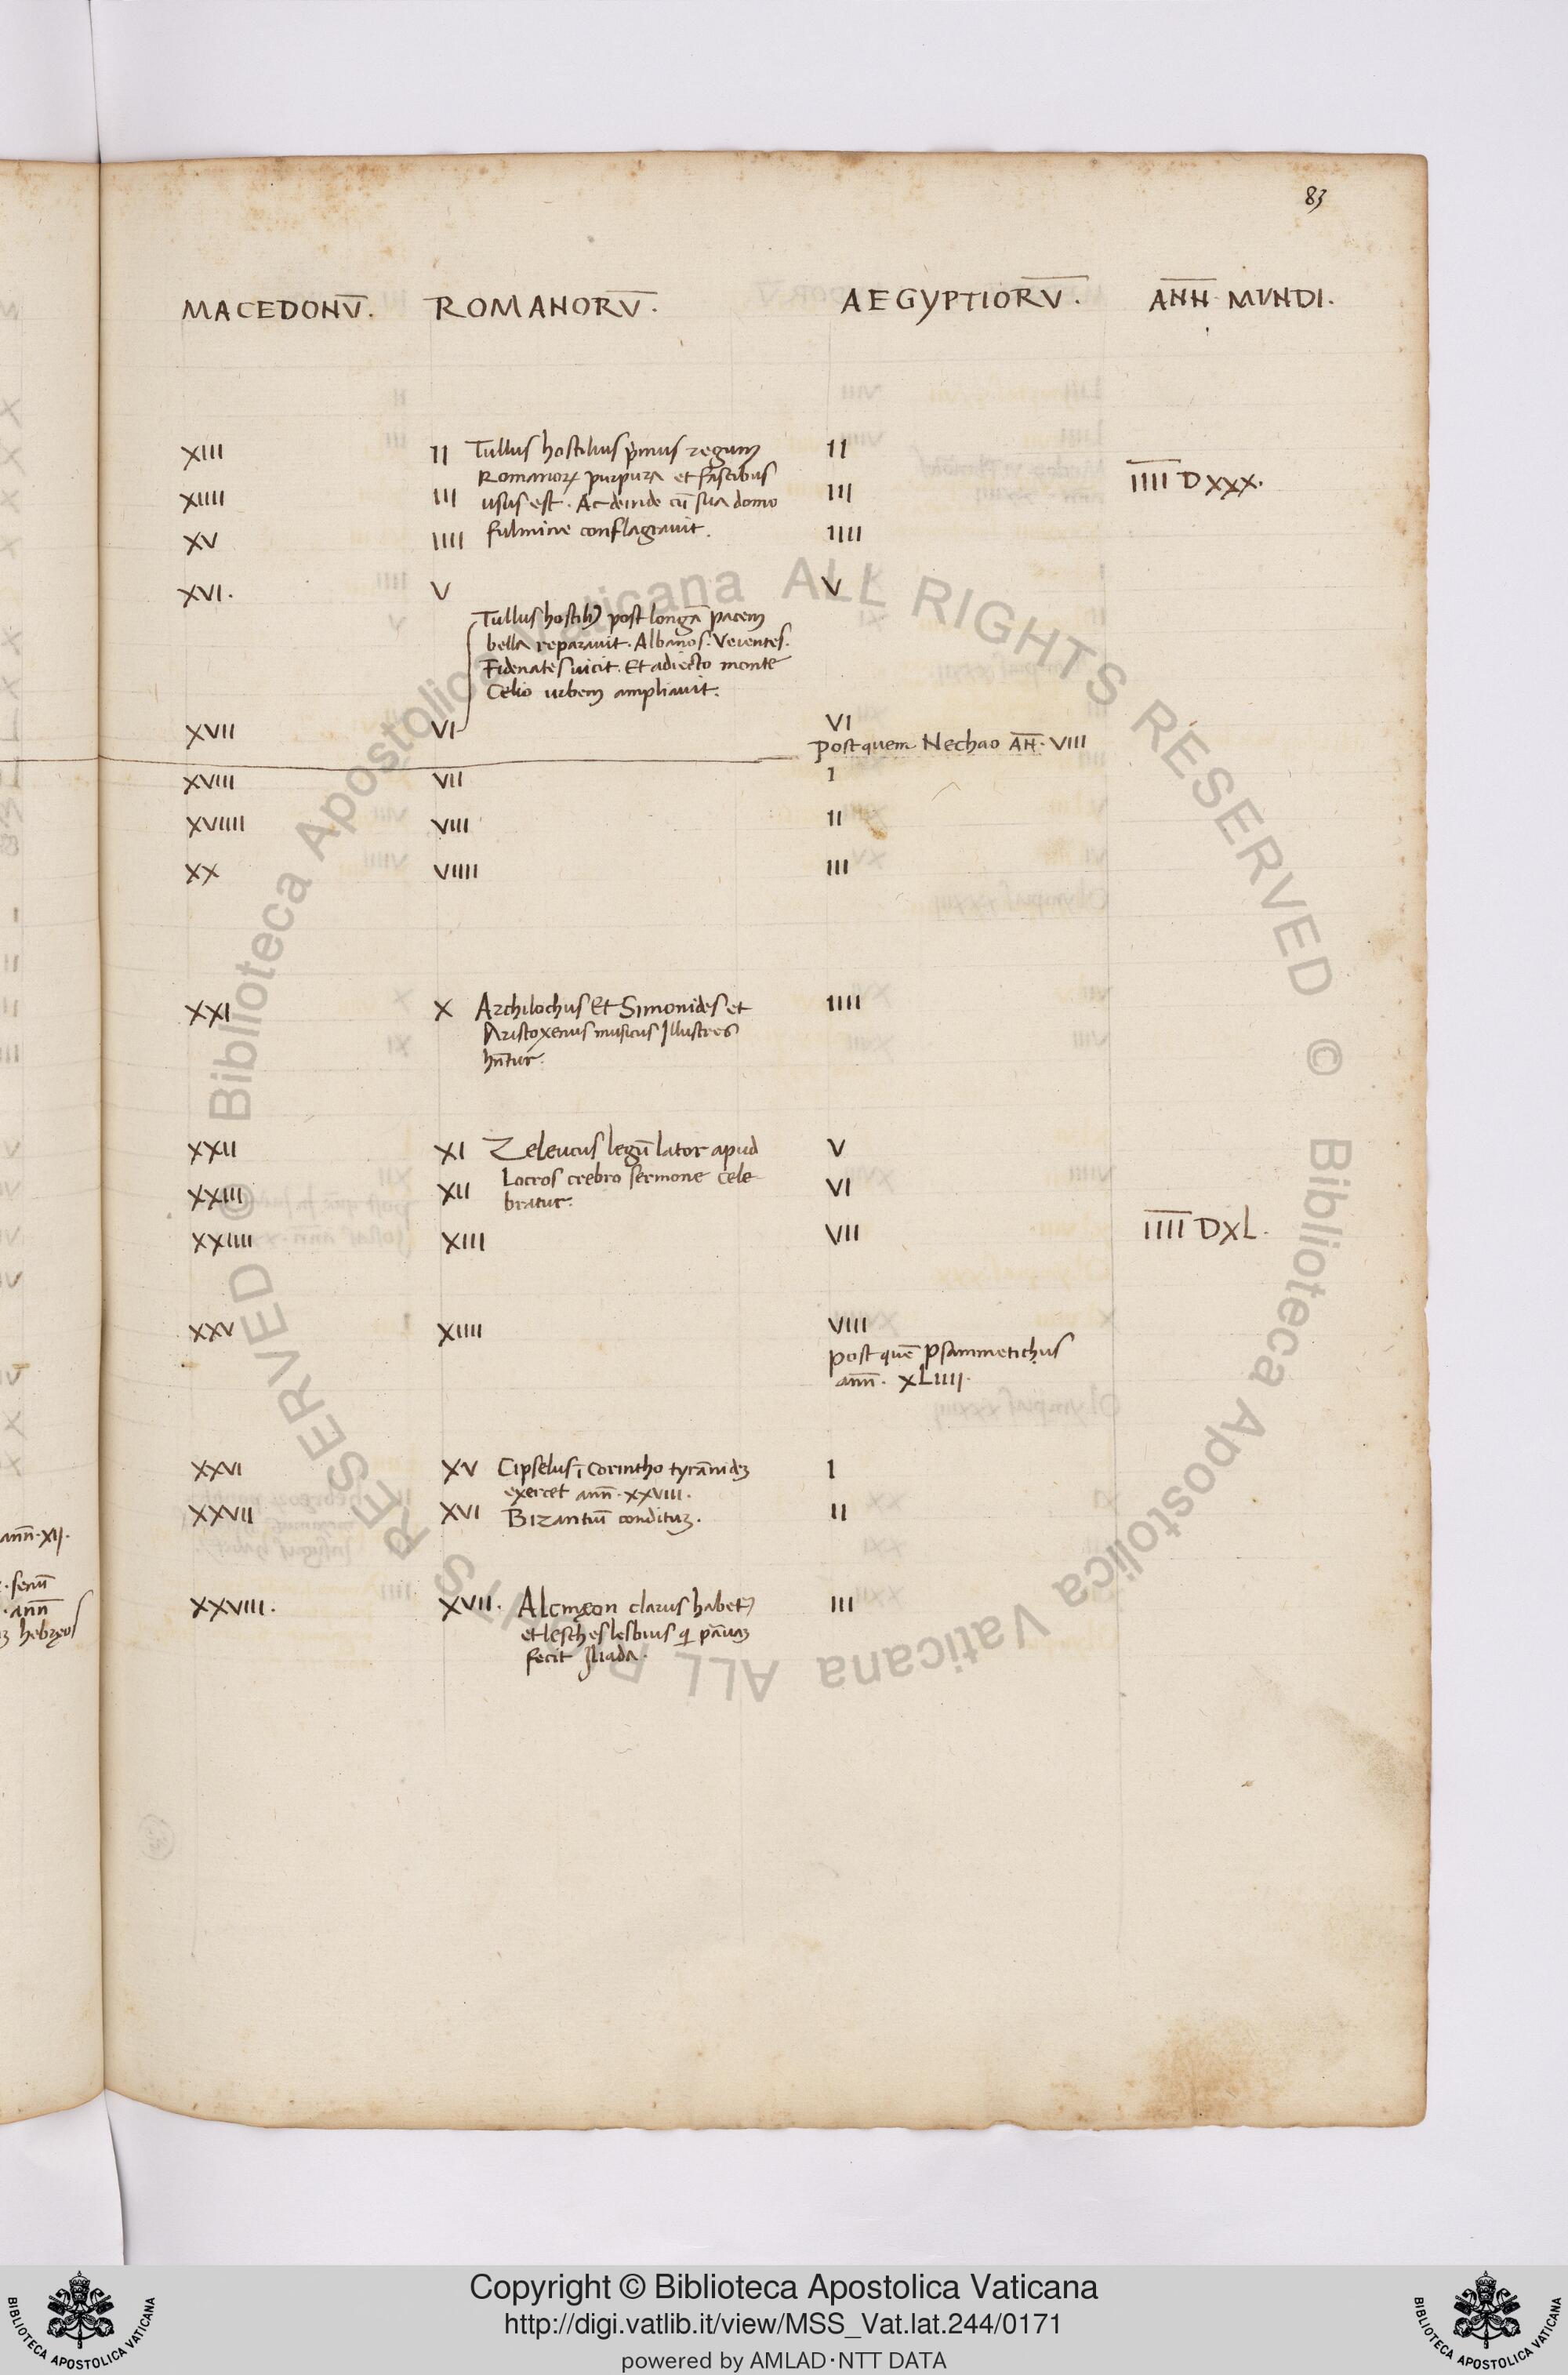 83
MACEDONV̄. ROMANORV̄. AEGYPTIORV̄. AN̄N̄ MVNDI.
XIII II Tullus hostilius pͥmus regum II
Romanoꝝ purpura et fascibus
IIII D XXX.
XIIII III usus est. Ac deinde cū sua domo III
XV IIII fulmine conflagravit. IIII
XVI. V V
Tullus hostiliꝰ post longā pacem
bella reparavit. Albanos. Veientes.
Fidenates vicit. Et adiecto monte
Celio urbem ampliavit.
XVII VI VI
post quem Nechao AN̄. VIII
XVIII VII I
XVIIII VIII II
XX VIIII III
XXI X Archilochus Et Simonides et IIII
Aristoxenus musicus Illustres
hn̄tur.
XXII XI Zeleucus legū lator apud V
Locros crebro sermone cele
XXIII XII bratur. VI
XXIIII XIII VII IIII DXL.
XXV XIIII VIII
post quē Psammetichus
ann̄. XLIIII.
XXVI XV Cipselus ī Corintho tyrānideꝫ I
exercet ann̄. XXVIII.
XXVII XVI Bizantiū conditum. II
XXVIII. XVII. Alcmęon clarus habetꝰ III
et lesches lesbius qͥ pāvaꝫ
fecit Iliada.
ann̄. XII.
senū
ann̄
hebręos
© Biblioteca Apostolica Vaticana ALL RIGHTS RESERVED © Biblioteca Apostolica Vaticana ALL RIGHTS RESERVED
Copyright © Biblioteca Apostolica Vaticana
http://digi.vatlib.it/view/MSS_Vat.lat.244/0171
powered by AMLAD·NTT DATA
BIBLIOTECA APOSTOLICA VATICANA
BIBLIOTECA APOSTOLICA VATICANA